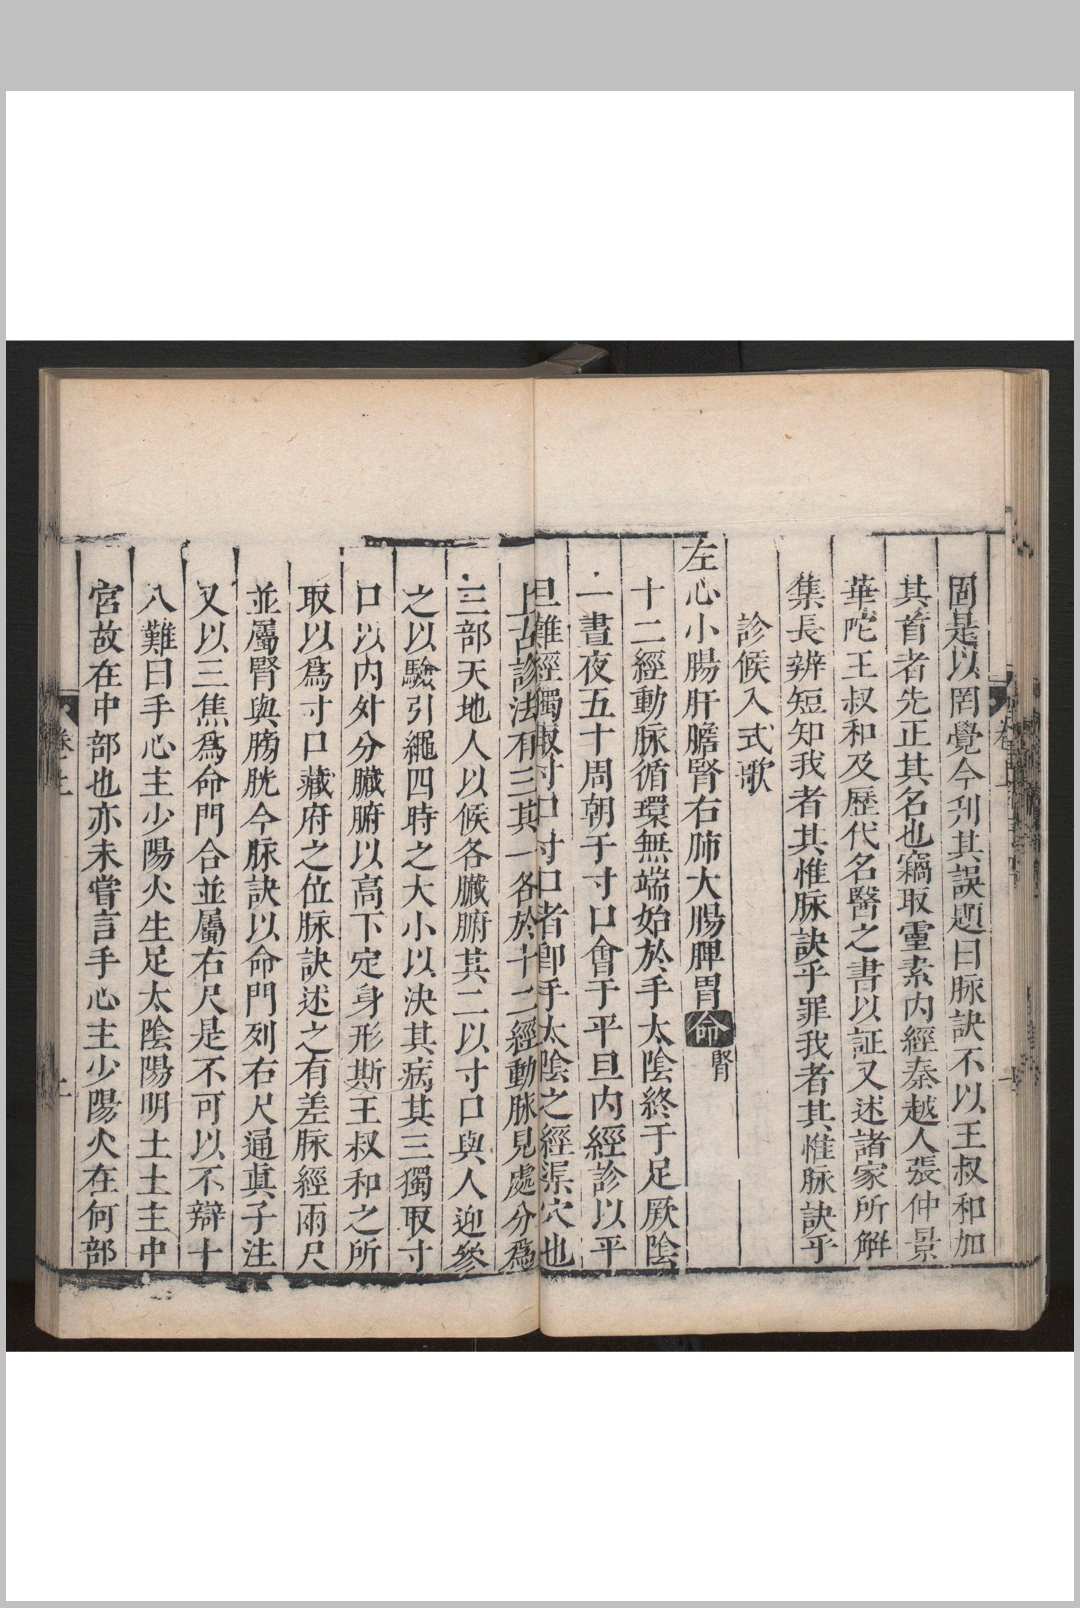 固是以罔覺今刋其誤題曰脉訣不以王叔和加
其首者先正其名也竊取靈素內經秦越人張仲景
華陀王叔和及歷代名醫之書以証又述諸家所解
集長辨短知我者其惟脉訣乎罪我者其惟脉訣乎
診候入式歌
左心小腸肝膽腎右肺大腸脾胃命腎
十二經動脉循環無端始於手太陰終于足厥陰
一晝夜五十周朝于寸口會于平旦內經診以平
旦難經獨取寸口寸口者卽手太陰之經渠穴也
上古診法有三其一各於十二經動脉見處分爲
三部天地人以候各臟腑其二以寸口與人迎參
之以驗引繩四時之大小以决其病其三獨取寸
口以內外分臟腑以高下定身形斯王叔和之所
取以爲寸口藏府之位脉訣述之有差脉經兩尺
並屬腎與膀胱今脉訣以命門列右尺通眞子注
又以三焦爲命門合並屬右尺是不可以不辯十
八難曰手心主少陽火生足太陰陽明土土主中
宮故在中部也亦未嘗言手心主少陽火在何部
卷上